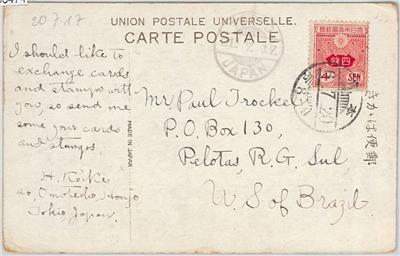 20.7.17
UNION POSTALE UNIVERSELLE.
CARTE POSTALE
JAPAN
4 SEN 四錢
I should like to
exchange cards
and stamps with
you, so send me
some your cards
and stamps
H. Koike
Omotecho, Honjo
Tokio, Japan.
MADE IN JAPAN
Mr Paul Trockel
P.O. Box 130,
Pelotas, R. G. Sul
U. S of Brazil
きかは便郵